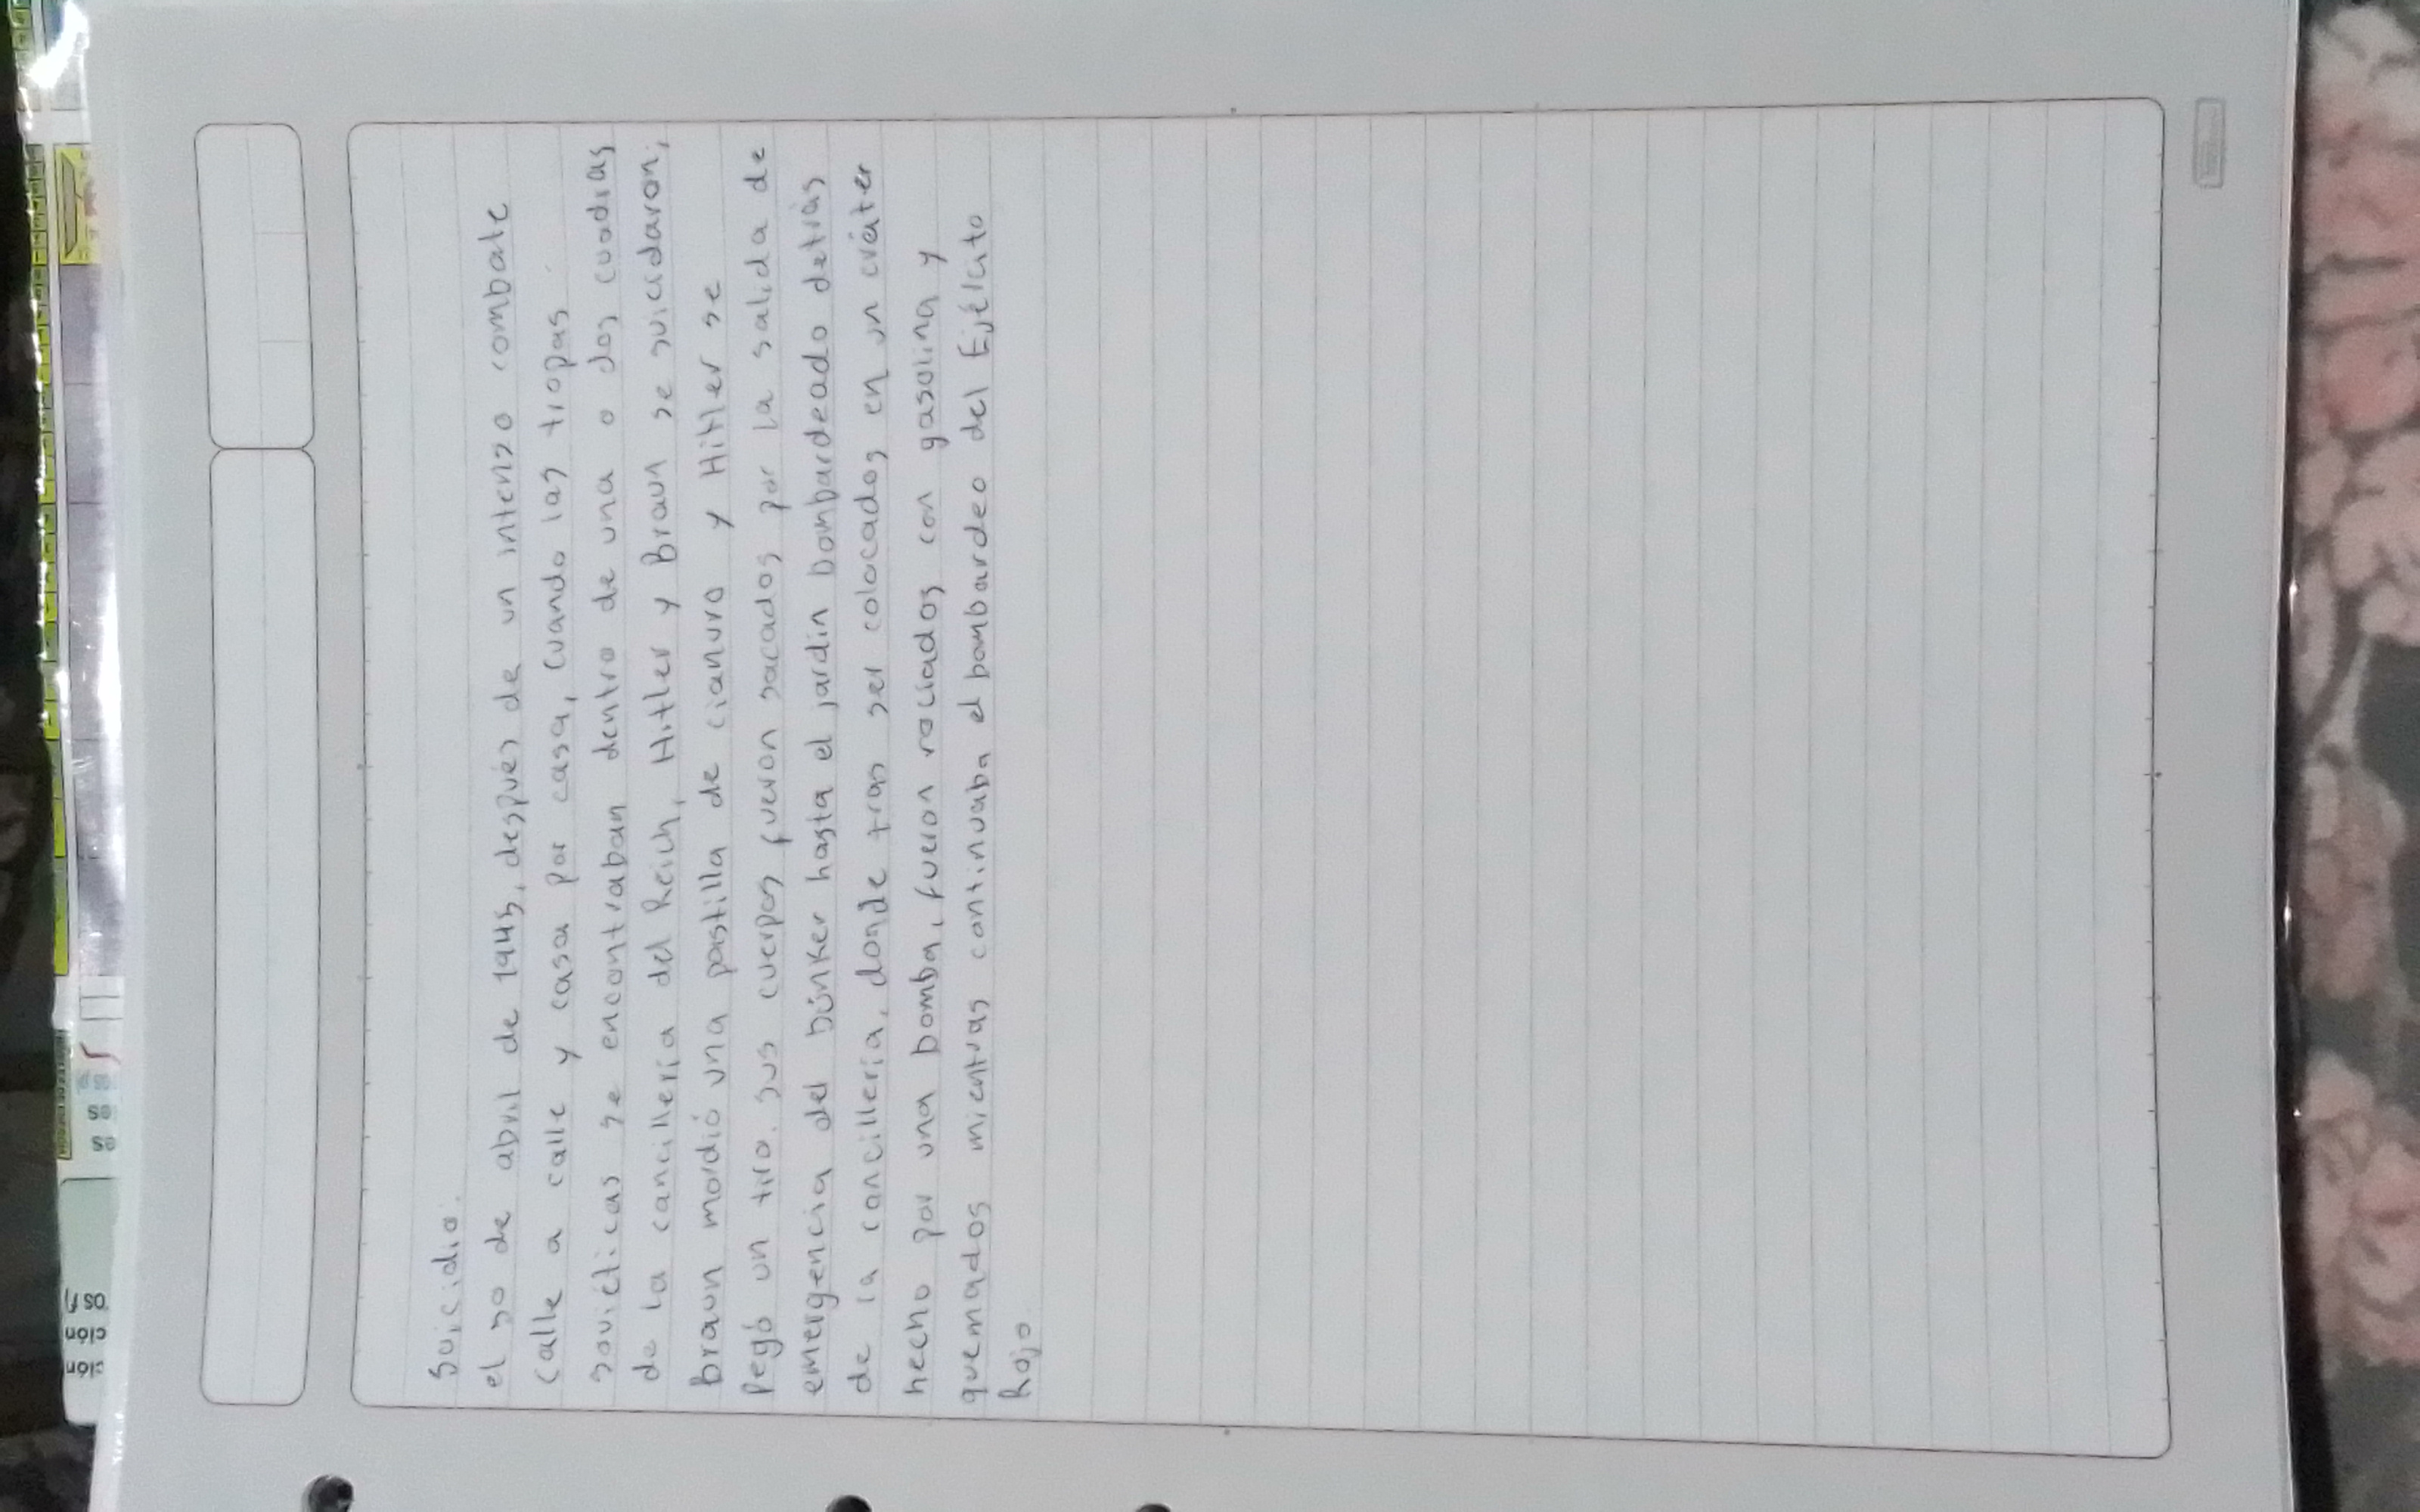 Suicidio.
el 30 de abril de 1945, después de un intenso combate
calle a calle y casa por casa, cuando las tropas
soviéticas se encontraban dentro de una o dos cuadras
de la cancillería del Reich, Hitler y Braun se suicidaron;
braun mordió una pastilla de cianuro y Hitler se
pegó un tiro. sus cuerpos fueron sacados por la salida de
emergencia del búnker hasta el jardín bombardeado detrás
de la cancillería, donde tras ser colocados en un cráter
hecho por una bomba, fueron rociados con gasolina y
quemados mientras continuaba el bombardeo del Ejército
Rojo
es
es
ción
ción